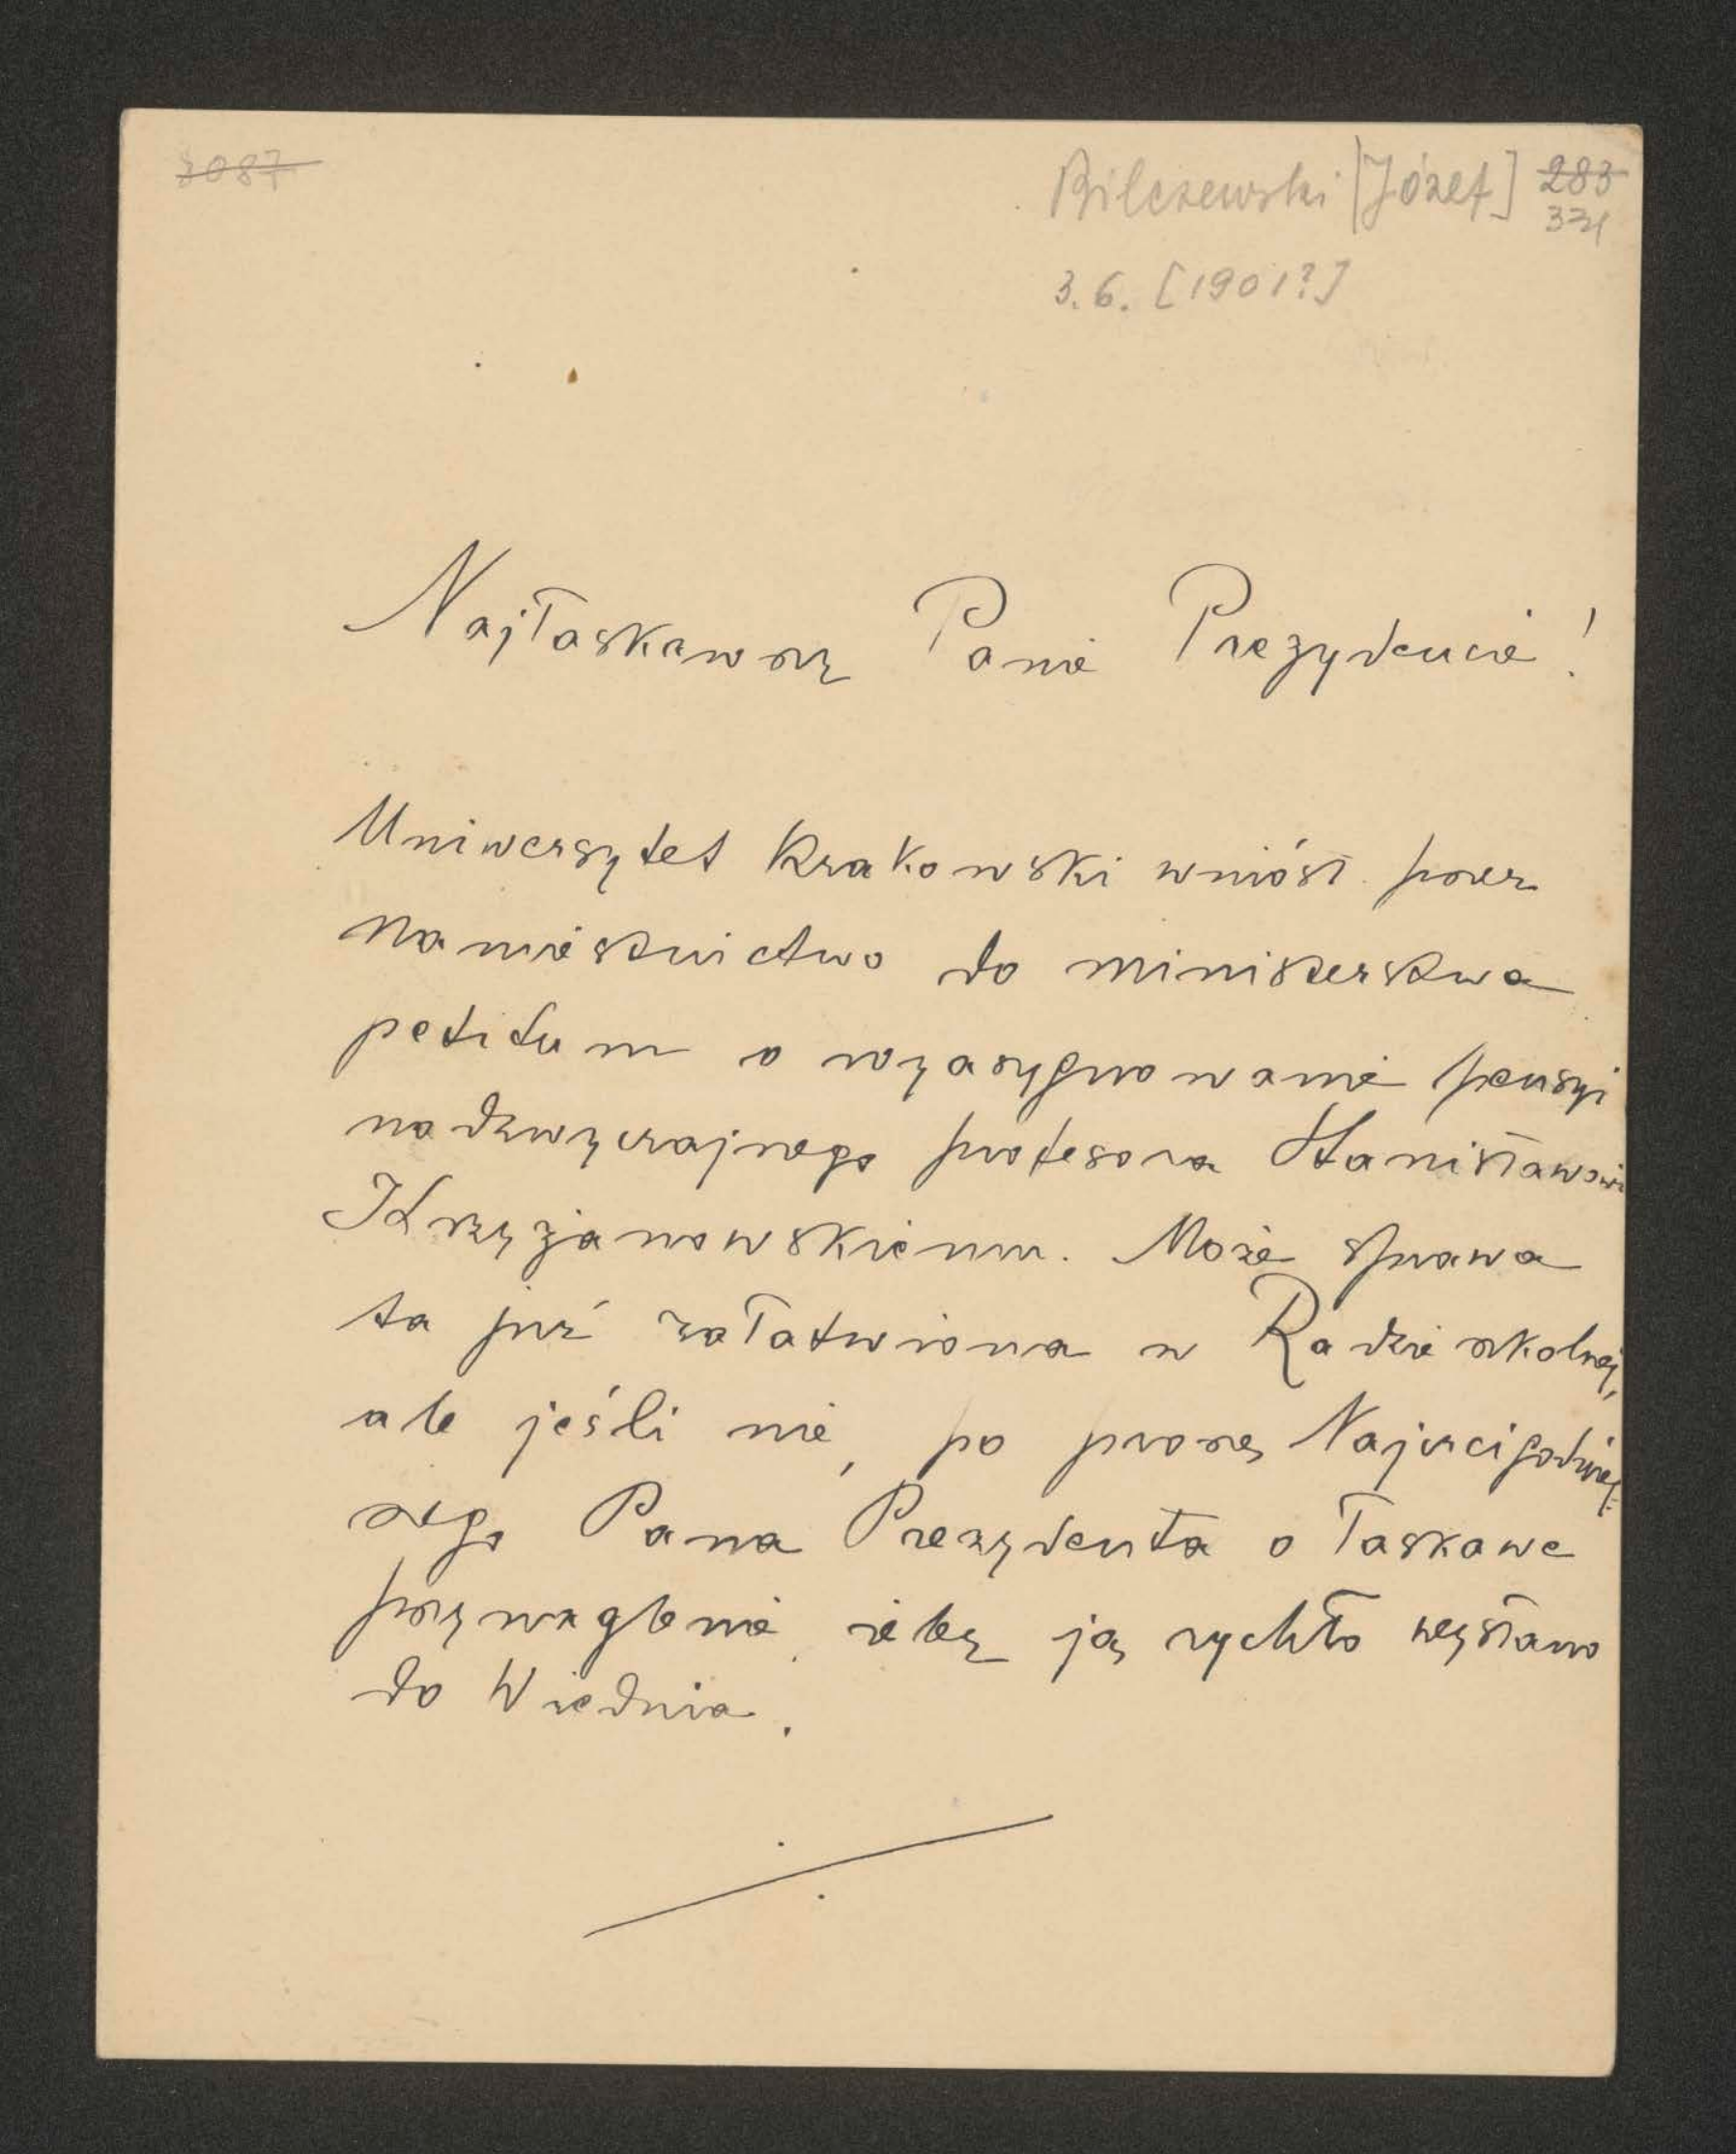 3087
Bilczewski [Józef] 283
331
3.6. [1901?]
Najłaskawszy Panie Prezydencie!
Uniwersytet Krakowski wniósł przez
Namiestnictwo do ministerstwa
petitum o wyasygnowanie pensyi
nadzwyczajnego profesora Stanisławowi
Krzyżanowskiemu. Może sprawa
ta już załatwiona w Radzie szkolnej,
ale jeśli nie, po proszę Najczcigodniej-
szego Pana Prezydenta o łaskawe
przynaglenie, żeby ją rychło wysłano
do Wiednia.